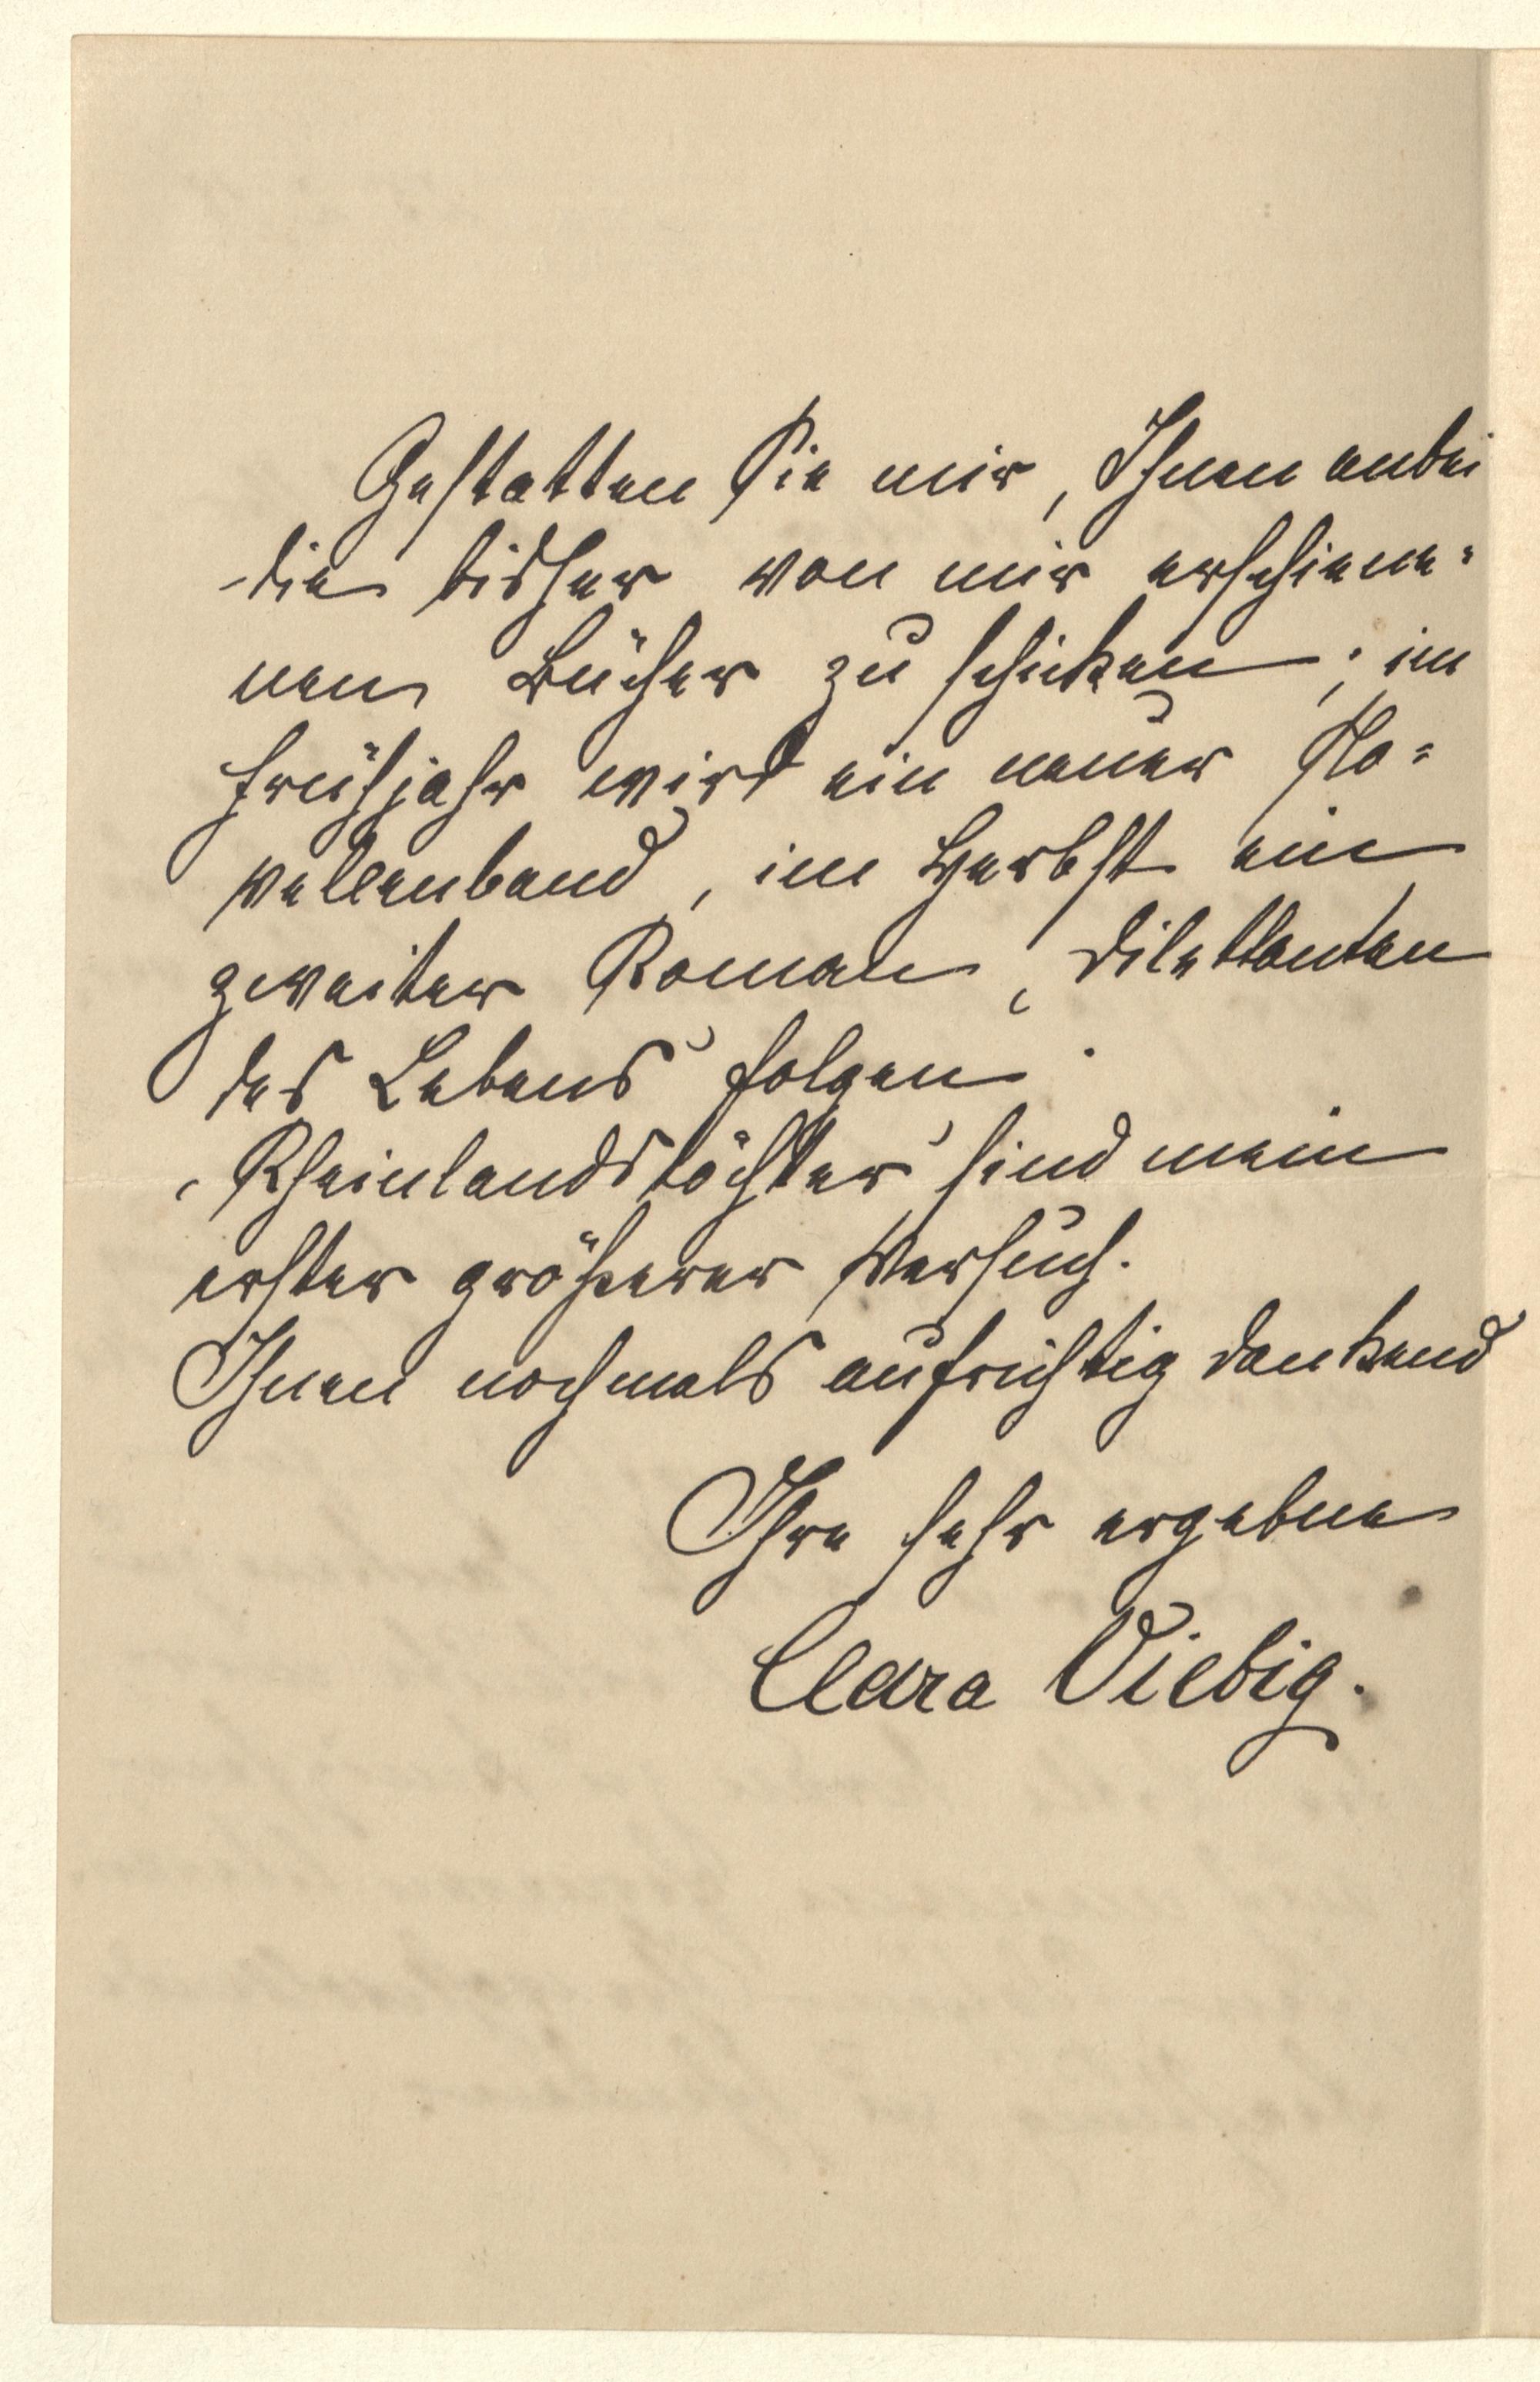 Gestatten Sie mir, Ihnen anbei
die bisher von mir erschiene-
nen Bücher zu schicken; im
Frühjahr wird ein neuer No-
vellenband, im Herbst ein
zweiter Roman „Dilettanten
des Lebens“ folgen.
„Rheinlandstöchter“ sind mein
erster größerer Versuch.
Ihnen nochmals aufrichtig dankend
Ihre sehr ergebne
Clara Viebig.